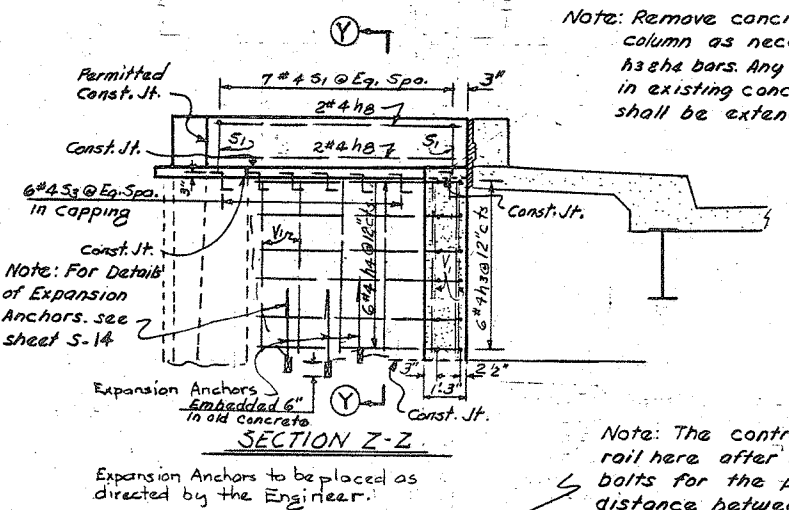 Y
Note: Remove concr
column as nec
h3&h4 bars. Any
in existing conc
shall be exten
Permitted
Const. Jt.
7 #4 S1 @ Eq. Spa.
3"
2#4 h8
Const. Jt.
S1
2#4 h8
S1
3"
6#4 S3 @ Eq. Spa.
in capping
Const. Jt.
Const. Jt.
V1
6#4 h4 @ 12" cts
V
6#4 h3 @ 12" cts
Note: For Details
of Expansion
Anchors. see
sheet S-14
3"
2½"
1'-3"
Expansion Anchors
Embedded 6"
in old concrete
Y
Const. Jt.
SECTION Z-Z
Expansion Anchors to be placed as
directed by the Engineer.
Note: The contr
rail here after
bolts for the p
distance between